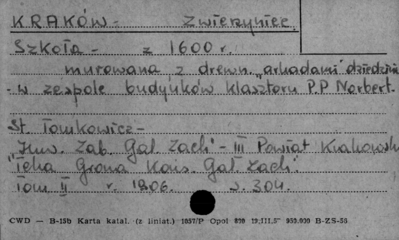 KRAKÓW - Zwierzyniec.
Szkoła - z 1600 r.
murowana z drewn. „arkadami” dziedzin
- w zespole budynków klasztoru P.P Norbert.
St. Tomkowicz -
"Inw. Zab. Gal. Zach" - III Powiat Krakowski
"Teka Grona Kons. Gal. Zach".
Tom II r. 1906. s. 304.
CWD — B-15b Karta katal. (z liniat.) 1057/P Opol